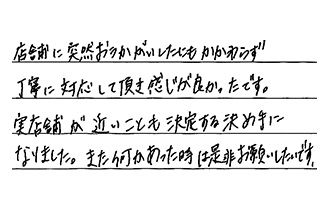 店舗に突然おうかがいしたにもかかわらず
丁寧に対応して頂き感じが良かったです。
実店舗が近いことも決定する決め手に
なりました。また何かあった時は是非お願いしたいです。